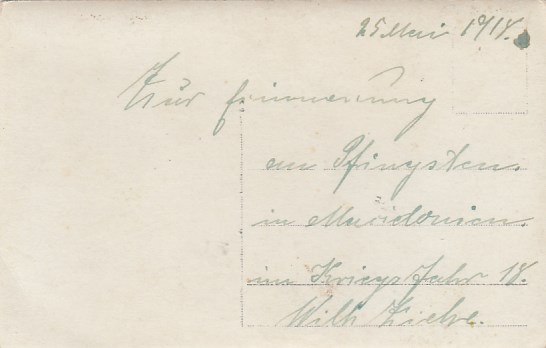 25 Mai 1918.
Zur Erinnerung
an Pfingsten.
in Macidonien.
im Kriegs Jahr 18.
Wilh